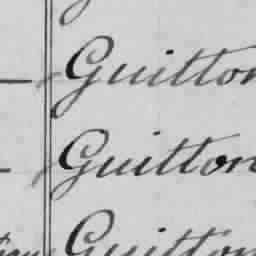 Guitton
Guitton
Guitton